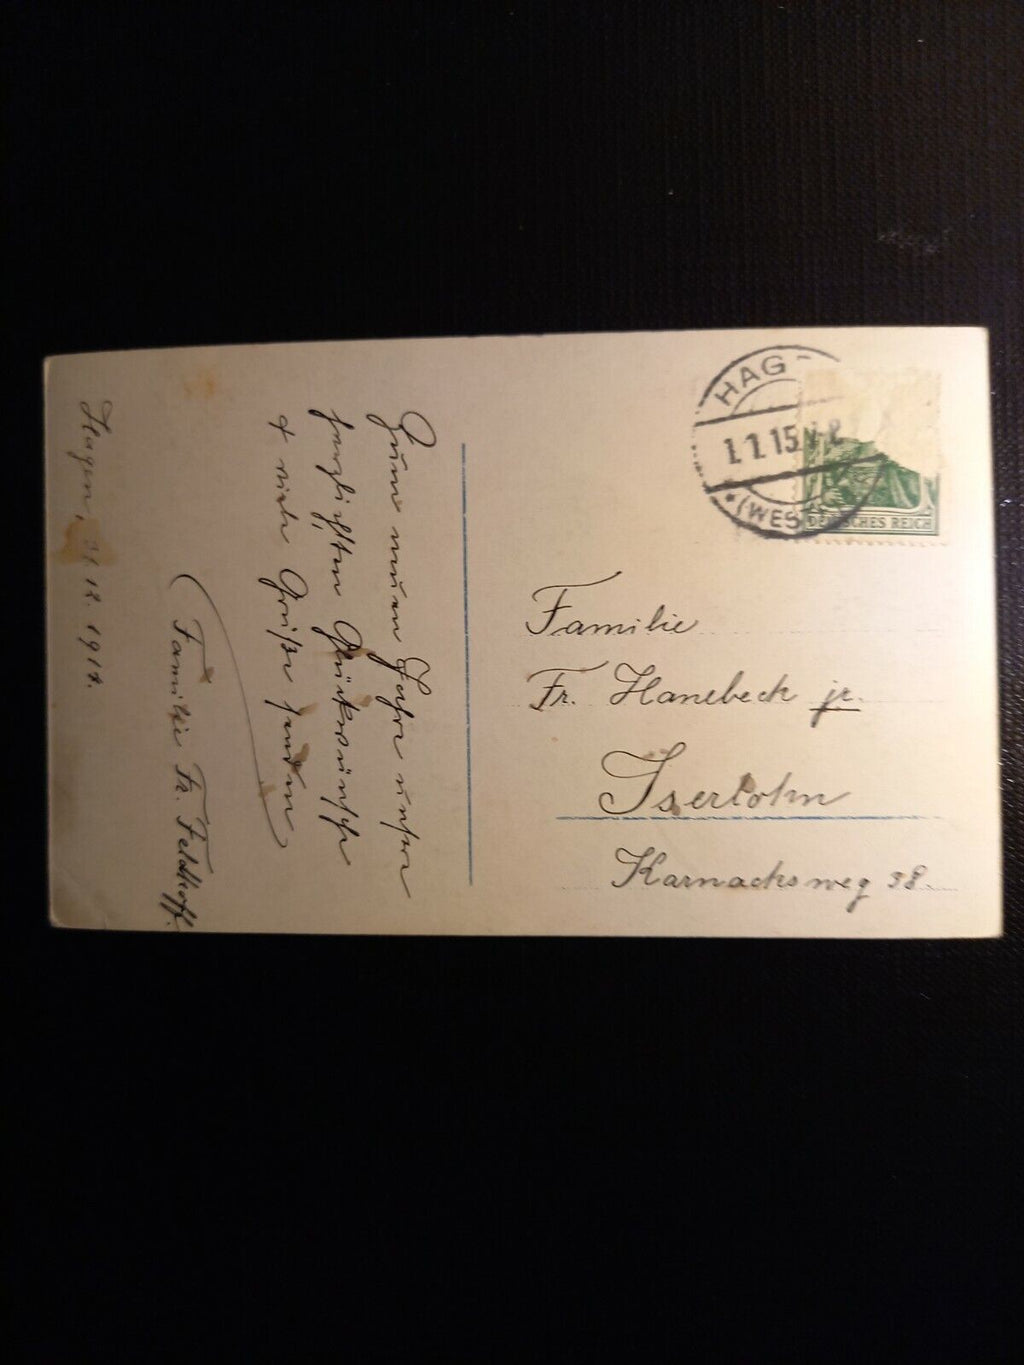 HAG
1.1.15
*(WEST
DEUTSCHES REICH
Familie
Fr. Hanebeck jr.
Iserlohn
Karnacksweg 38.
Zum neuen Jahre unsere
herzlichsten Glückwünsche
& viele Grüße senden
Familie Fr. Feldhoff.
Hagen, 31.12.1914.